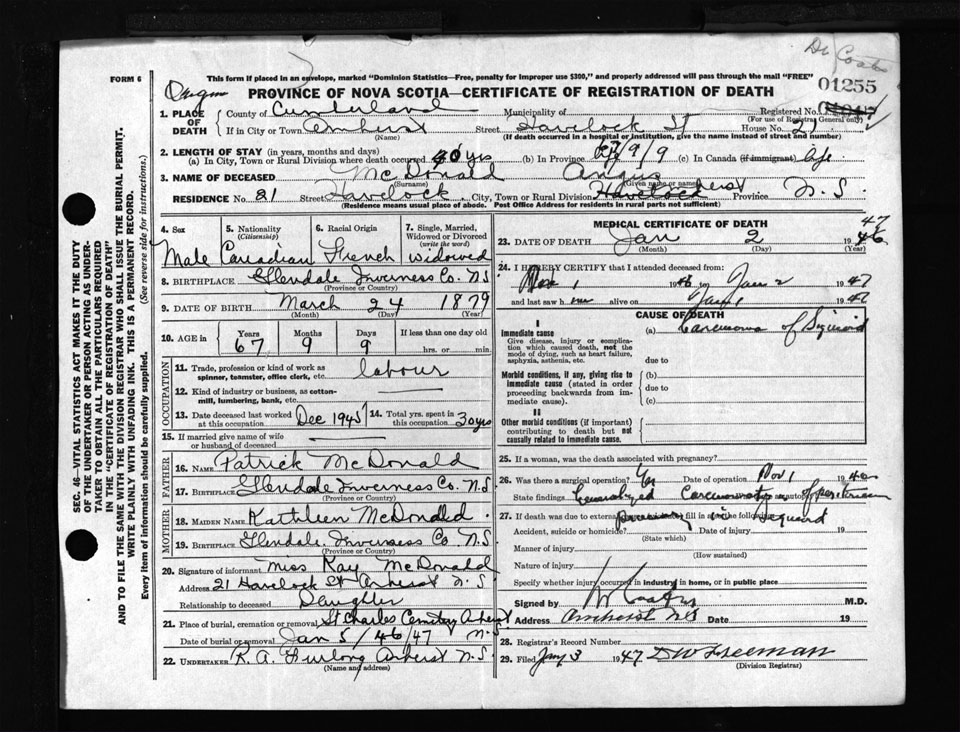 Dr Coates
FORM 6
This form if placed in an envelope, marked "Dominion Statistics—Free, penalty for improper use $300," and properly addressed will pass through the mail "FREE"
01255
PROVINCE OF NOVA SCOTIA—CERTIFICATE OF REGISTRATION OF DEATH
1. PLACE OF DEATH
County of Cumberland Municipality of Registered No.
(For use of Registrar General only)
If in City or Town Amherst Street Havelock St House No. 21
(Name) (If death occurred in a hospital or institution, give the name instead of street and number)
2. LENGTH OF STAY (in years, months and days)
(a) In City, Town or Rural Division where death occurred 40 yrs (b) In Province 67/9/9 (c) In Canada (if immigrant) Life
3. NAME OF DECEASED McDonald Angus
(Surname) (Given name or names)
RESIDENCE No. 21 Street Havelock City, Town or Rural Division Havelock Amherst Province N.S
(Residence means usual place of abode. Post Office Address for residents in rural parts not sufficient)
SEC. 46—VITAL STATISTICS ACT MAKES IT THE DUTY
OF THE UNDERTAKER OR PERSON ACTING AS UNDER-
TAKER TO OBTAIN ALL THE PARTICULARS REQUIRED
IN THE "CERTIFICATE OF REGISTRATION OF DEATH"
AND TO FILE THE SAME WITH THE DIVISION REGISTRAR WHO SHALL ISSUE THE BURIAL PERMIT.
WRITE PLAINLY WITH UNFADING INK. THIS IS A PERMANENT RECORD.
Every item of information should be carefully supplied. (See reverse side for instructions.)
4. Sex 5. Nationality 6. Racial Origin 7. Single, Married,
(Citizenship) Widowed or Divorced
(write the word)
Male Canadian French widowed
8. BIRTHPLACE Glendale Inverness Co. NS
(Province or Country)
9. DATE OF BIRTH March 24 1879
(Month) (Day) (Year)
10. AGE in Years Months Days If less than one day
67 9 9 hrs. or min.
OCCUPATION
11. Trade, profession or kind of work as
spinner, teamster, office clerk, etc. labour
12. Kind of industry or business, as cotton-
mill, lumbering, bank, etc.
13. Date deceased last worked at this occupation Dec 1945 14. Total yrs. spent in this occupation 30 yrs
15. If married give name of wife
or husband of deceased
FATHER
16. NAME Patrick McDonald
17. BIRTHPLACE Glendale Inverness Co. N.S
(Province or Country)
MOTHER
18. MAIDEN NAME Kathleen McDonald.
19. BIRTHPLACE Glendale Inverness Co N.S.
(Province or Country)
20. Signature of informant Miss Kay McDonald
Address 21 Havelock St Amherst N.S
Relationship to deceased Daughter
21. Place of burial, cremation or removal St Charles Cemetry Amherst
Date of burial or removal Jan 5/46/47 N.S
22. UNDERTAKER R.A. Furlong Amherst N.S.
(Name and address)
MEDICAL CERTIFICATE OF DEATH
47
23. DATE OF DEATH Jan 2 1946
(Month) (Day) (Year)
24. I HEREBY CERTIFY that I attended deceased from:
Nov 1 1946 to Jan 2 1947
and last saw him alive on Jan 1 1947
CAUSE OF DEATH
I
Immediate cause (a) Carcinoma of Sigmoid
Give disease, injury or complica-
tion which caused death, not the
mode of dying, such as heart failure,
asphyxia, asthenia, etc. due to
Morbid conditions, if any, giving rise to (b)
immediate cause (stated in order due to
proceeding backwards from im-
mediate cause). (c)
II
Other morbid conditions (if important)
contributing to death but not
causally related to immediate cause.
25. If a woman, was the death associated with pregnancy?
26. Was there a surgical operation? Yes Date of operation Nov 1 1946
State findings Generalized Carcinomatosis of peritoneum
27. If death was due to external fill in also the following: primary in Sigmoid
Accident, suicide or homicide? Date of injury 19
(State which)
Manner of injury
(How sustained)
Nature of injury
Specify whether injury occurred in industry in home, or in public place
Signed by Coates M.D.
Address Amherst NS Date 19
28. Registrar's Record Number
29. Filed Jany 3 1947 D W Freeman
(Division Registrar)